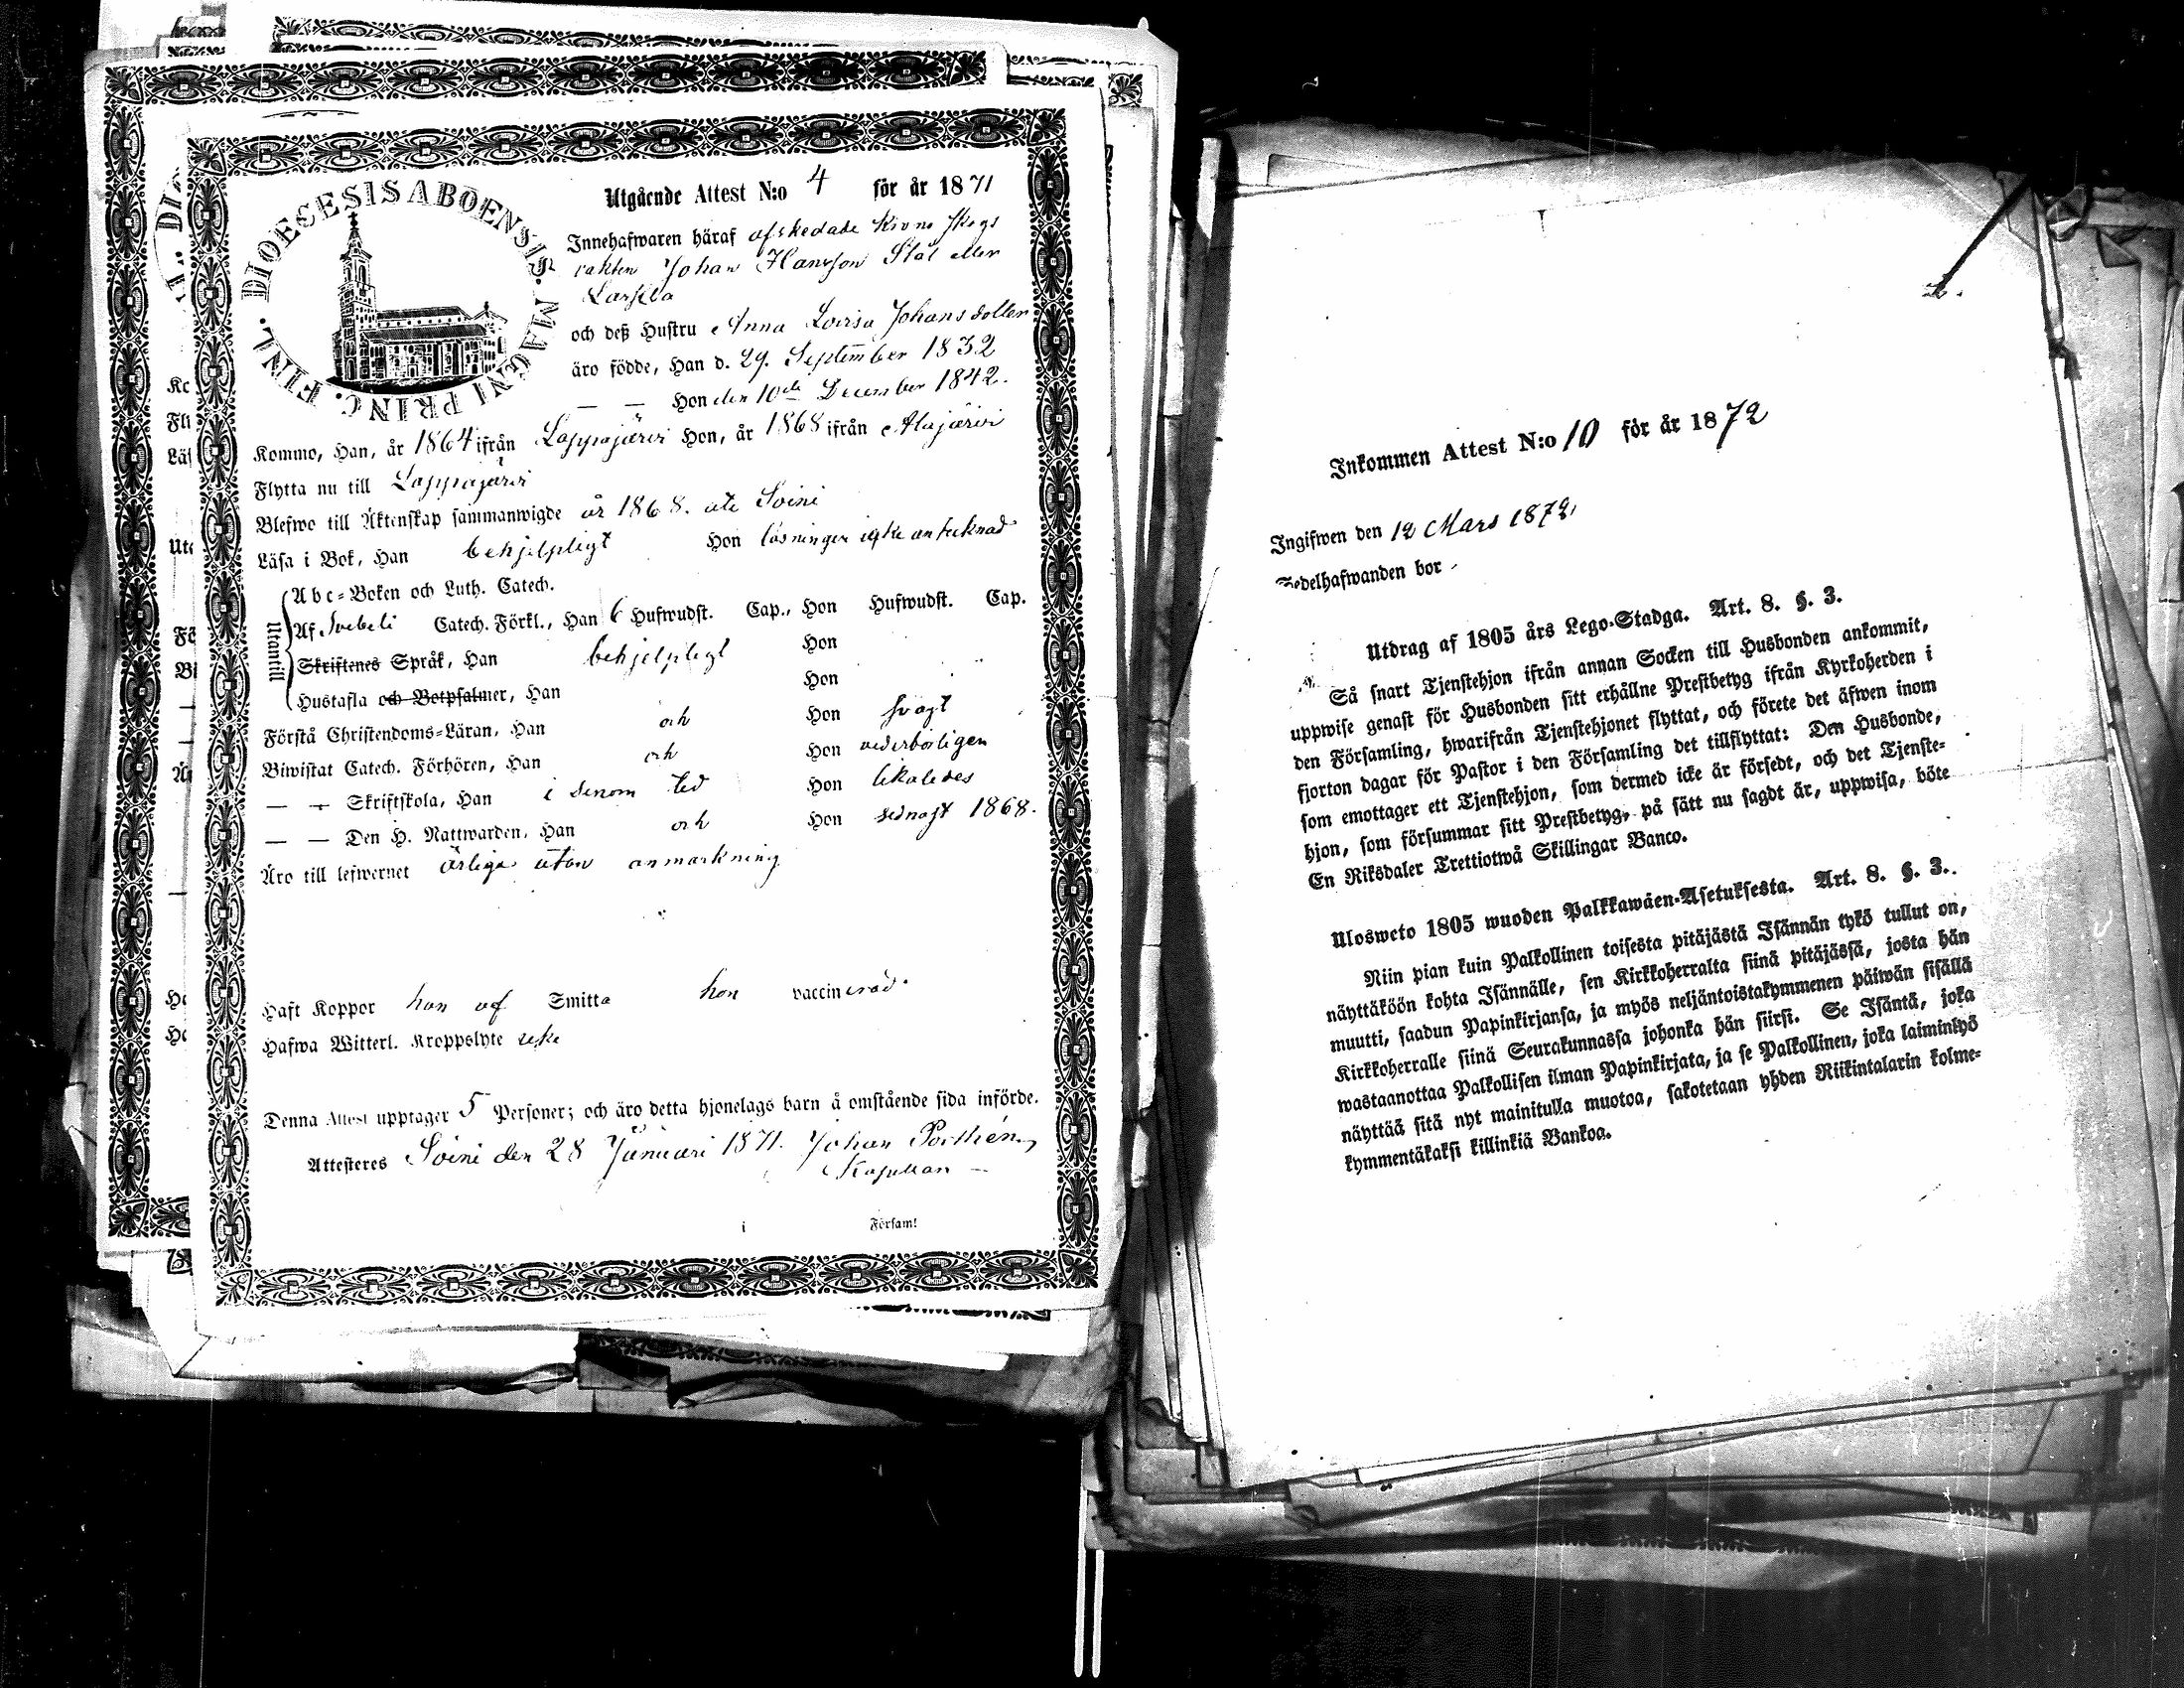 DIOECESIS ABOENSIS. MAGNI PRINC. FINL.
Utgående Attest N:o 4 för år 1871
Innehafwaren häraf afskedade Krono Skogs
vakten Johan Hansson Stål eller
och deß Hustru Anna Lovisa Johansdotter
äro födde, Han d. 29. September 1832
— — Hon den 10de December 1842.
Kommo, Han, år 1864 ifrån Lappajärvi Hon, år 1868 ifrån Alajärvi
Flytta nu till Lappajärvi
Blefwo till Äktenskap sammanwigde år 1868. uti Soini
Läsa i Bok, Han behjelpligt Hon läsningen icke antecknad
Utantill
Abc-Boken och Luth. Catech.
Af Svebeli Catech. Förkl., Han 6 Hufwudst. Cap., Hon Hufwudst. Cap.
Skriftenes Språk, Han behjelpligt Hon
Hustafla och Botpsalmer, Han Hon
Förstå Christendoms-Läran, Han och Hon svagt
Biwistat Catech. Förhören, Han och Hon vederbörligen
— — Skriftskola, Han i sinom tid Hon likaledes
— — Den H. Nattwarden, Han och Hon sednast 1868.
Äro till lefwernet ärliga utan anmärkning
Haft Koppor han af Smitta hon vaccinerad.
Hafwa Witterl. Kroppslyte icke
Denna Attest upptager 5 Personer; och äro detta hjonelags barn å omstående sida införde.
Attesteres Soini den 28 Januari 1871. Johan Porthén,
Kapellan —
i Församl
Inkommen Attest N:o 10 för år 1872
Ingifwen den 12 Mars 1872,
Sedelhafwanden bor
Utdrag af 1805 års Lego-Stadga. Art. 8. §. 3.
Så snart Tjenstehjon ifrån annan Socken till Husbonden ankommit,
uppwise genast för Husbonden sitt erhållne Prestbetyg ifrån Kyrkoherden i
den Församling, hwarifrån Tjenstehjonet flyttat, och förete det äfwen inom
fjorton dagar för Pastor i den Församling det tillflyttat: Den Husbonde,
som emottager ett Tjenstehjon, som dermed icke är försedt, och det Tjenste-
hjon, som försummar sitt Prestbetyg, på sätt nu sagdt är, uppwisa, böte
En Riksdaler Trettiotwå Skillingar Banco.
Ulosweto 1805 wuoden Palkkawäen-Asetuksesta. Art. 8. §. 3.
Niin pian kuin Palkollinen toisesta pitäjästä Isännän tykö tullut on,
näyttäköön kohta Isännälle, sen Kirkkoherralta siinä pitäjässä, josta hän
muutti, saadun Papinkirjansa, ja myös neljäntoistakymmenen päiwän sisällä
Kirkkoherralle siinä Seurakunnassa johonka hän siirsi. Se Isäntä, joka
wastaanottaa Palkollisen ilman Papinkirjata, ja se Palkollinen, joka laiminlyö
näyttää sitä nyt mainitulla muotoa, sakotetaan yhden Riikintalarin kolme-
kymmentäkaksi killinkiä Bankoa.